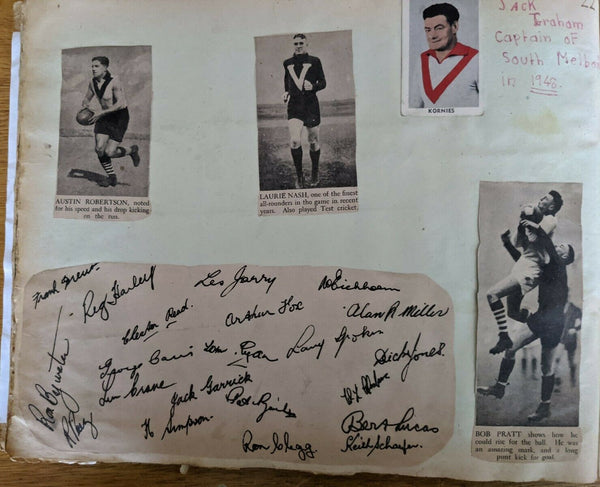 22
JACK
Graham
Captain of
South Melbou
in 1948.
KORNIES
AUSTIN ROBERTSON, noted
for his speed and his drop kicking
on the run.
LAURIE NASH, one of the finest
all-rounders in the game in recent
years. Also played Test cricket.
BOB PRATT shows how he
could rise for the ball. He was
an amazing mark, and a long
punt kick for goal.
Reg Les Jarry Eichhorn
Clestor Read. Arthur Fox Alan R. Miller
George Tom Ryan Larry Spokes Dick Jones
Len Crane Jack Garrick
H Simpson. Bert Lucas
Ron Clegg Keith Schaefer